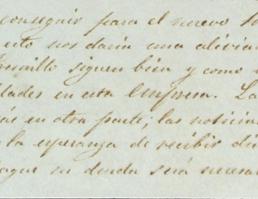 conseguir para el nuevo
esto nos daria una alivia
siguen bien y como
dades en esta Empresa. La
as en otra parte; las noticia
la esperanza de recibir di
su deuda será necesa